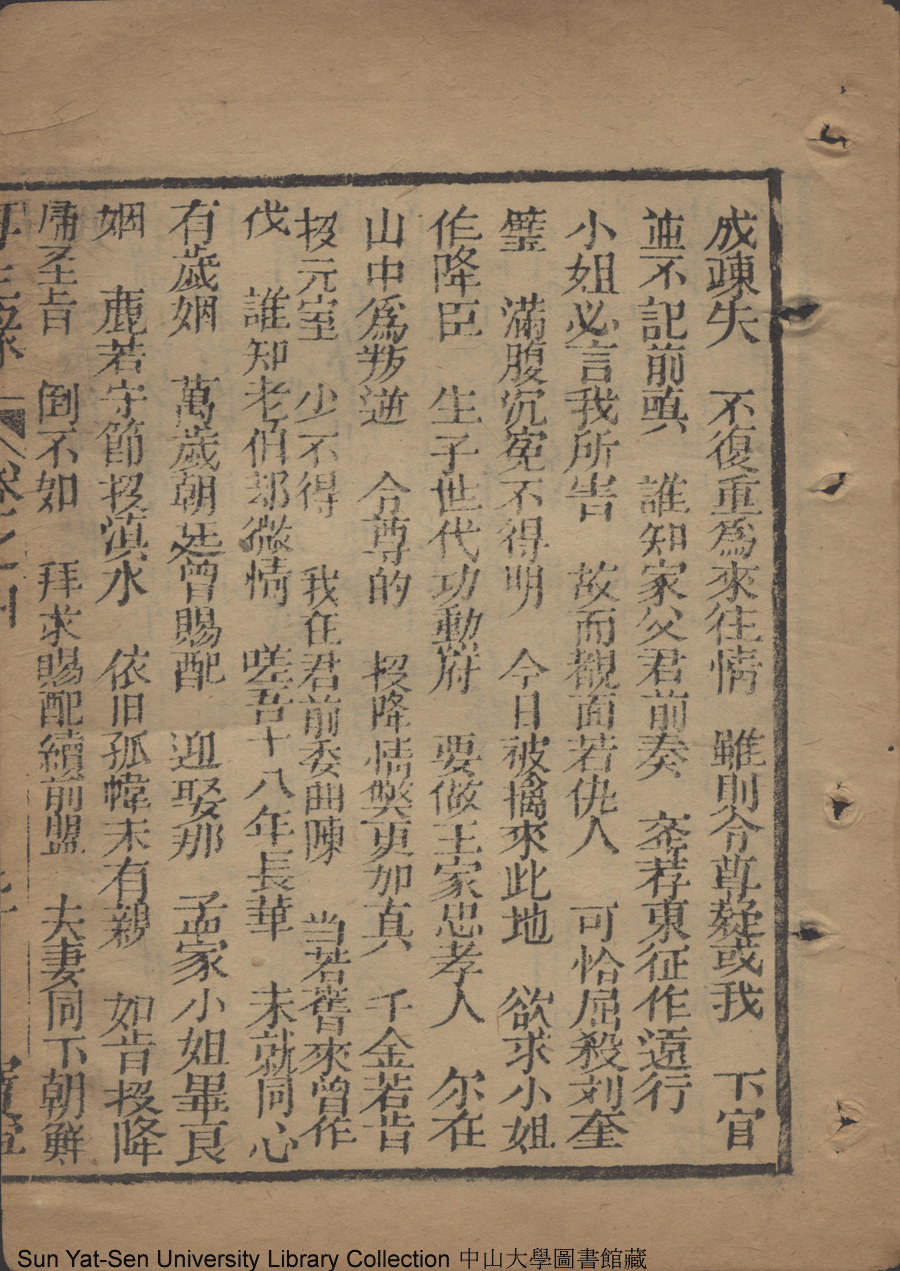 成疎失　不復重爲來往情　雖則令尊疑或我　下官
並不記前嗔　誰知家父君前奏　叅荐東征作遠行
小姐必言我所害　故而覩面若仇人　可恰屈殺刘奎
璧　滿腹沉寃不得明　今日被擒來此地　欲求小姐
作降臣　生子世代功勳府　要做王家忠孝人　尔在
山中爲叛逆　令尊的　投降情獘更加真　千金若肯
投元室　少不得　我在君前委曲陳　当若舊來曾作
伐　誰知老伯却微情　嗟吾十八年長華　未就同心
有歲姻　萬歲朝廷曾賜配　迎娶那　孟家小姐畢良
姻　鹿若守節投滇水　依旧孤幃未有親　如肯投降
歸圣旨　倒不如　拜求賜配續前盟　夫妻同下朝鮮
再生緣　卷之四
Sun Yat-Sen University Library Collection 中山大學圖書館藏